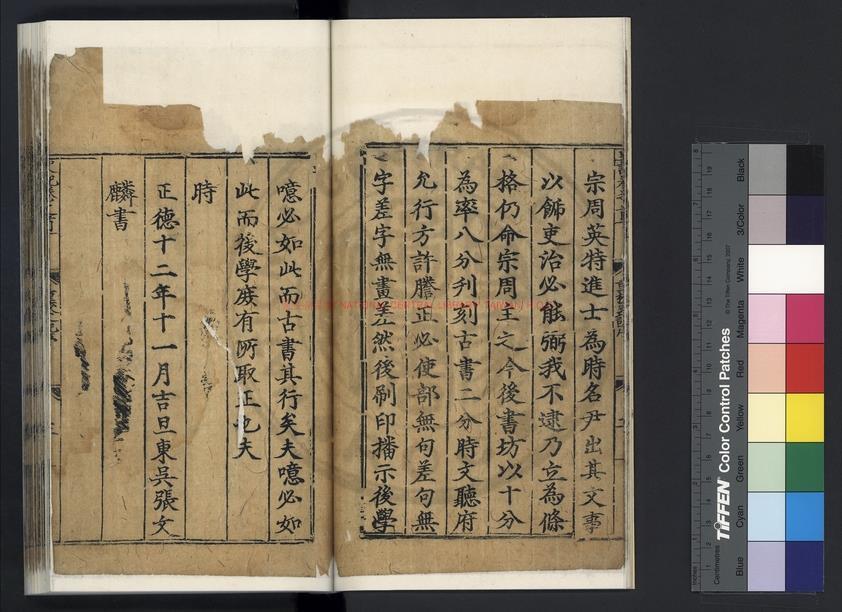 宗周英特進士為時名尹出其文事
以飾吏治必能弼我不逮乃立為條
格仍命宗周主之今後書坊以十分
為率八分刋刻古書二分時文聽府
允行方許謄正必使部無句差句無
字差字無畫差然後刷印播示後學
噫必如此而古書其行矣夫噫必如
此而後學庶有所取正也夫
時
正德十二年十一月吉旦東吳張文
麟書
NATIONAL CENTRAL LIBRARY
TIFFEN Color Control Patches
© The Tiffen Company, 2007
Inches
Centimetres
Blue
Cyan
Green
Yellow
Red
Magenta
White
3/Color
Black